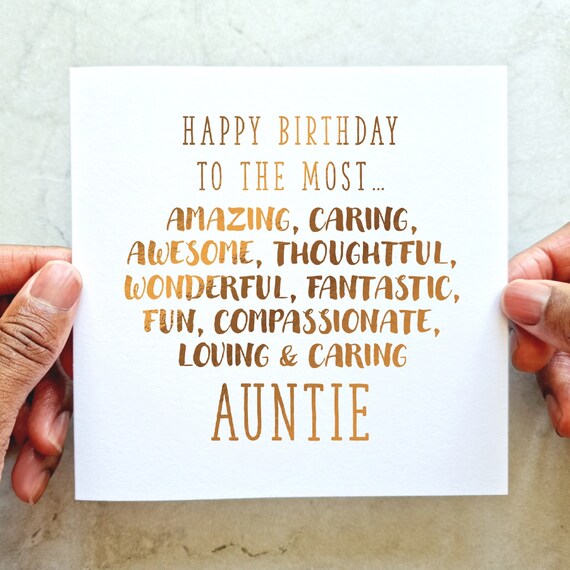 HAPPY BIRTHDAY
TO THE MOST...
AMAZING, CARING,
AWESOME, THOUGHTFUL,
WONDERFUL, FANTASTIC,
FUN, COMPASSIONATE,
LOVING & CARING
AUNTIE